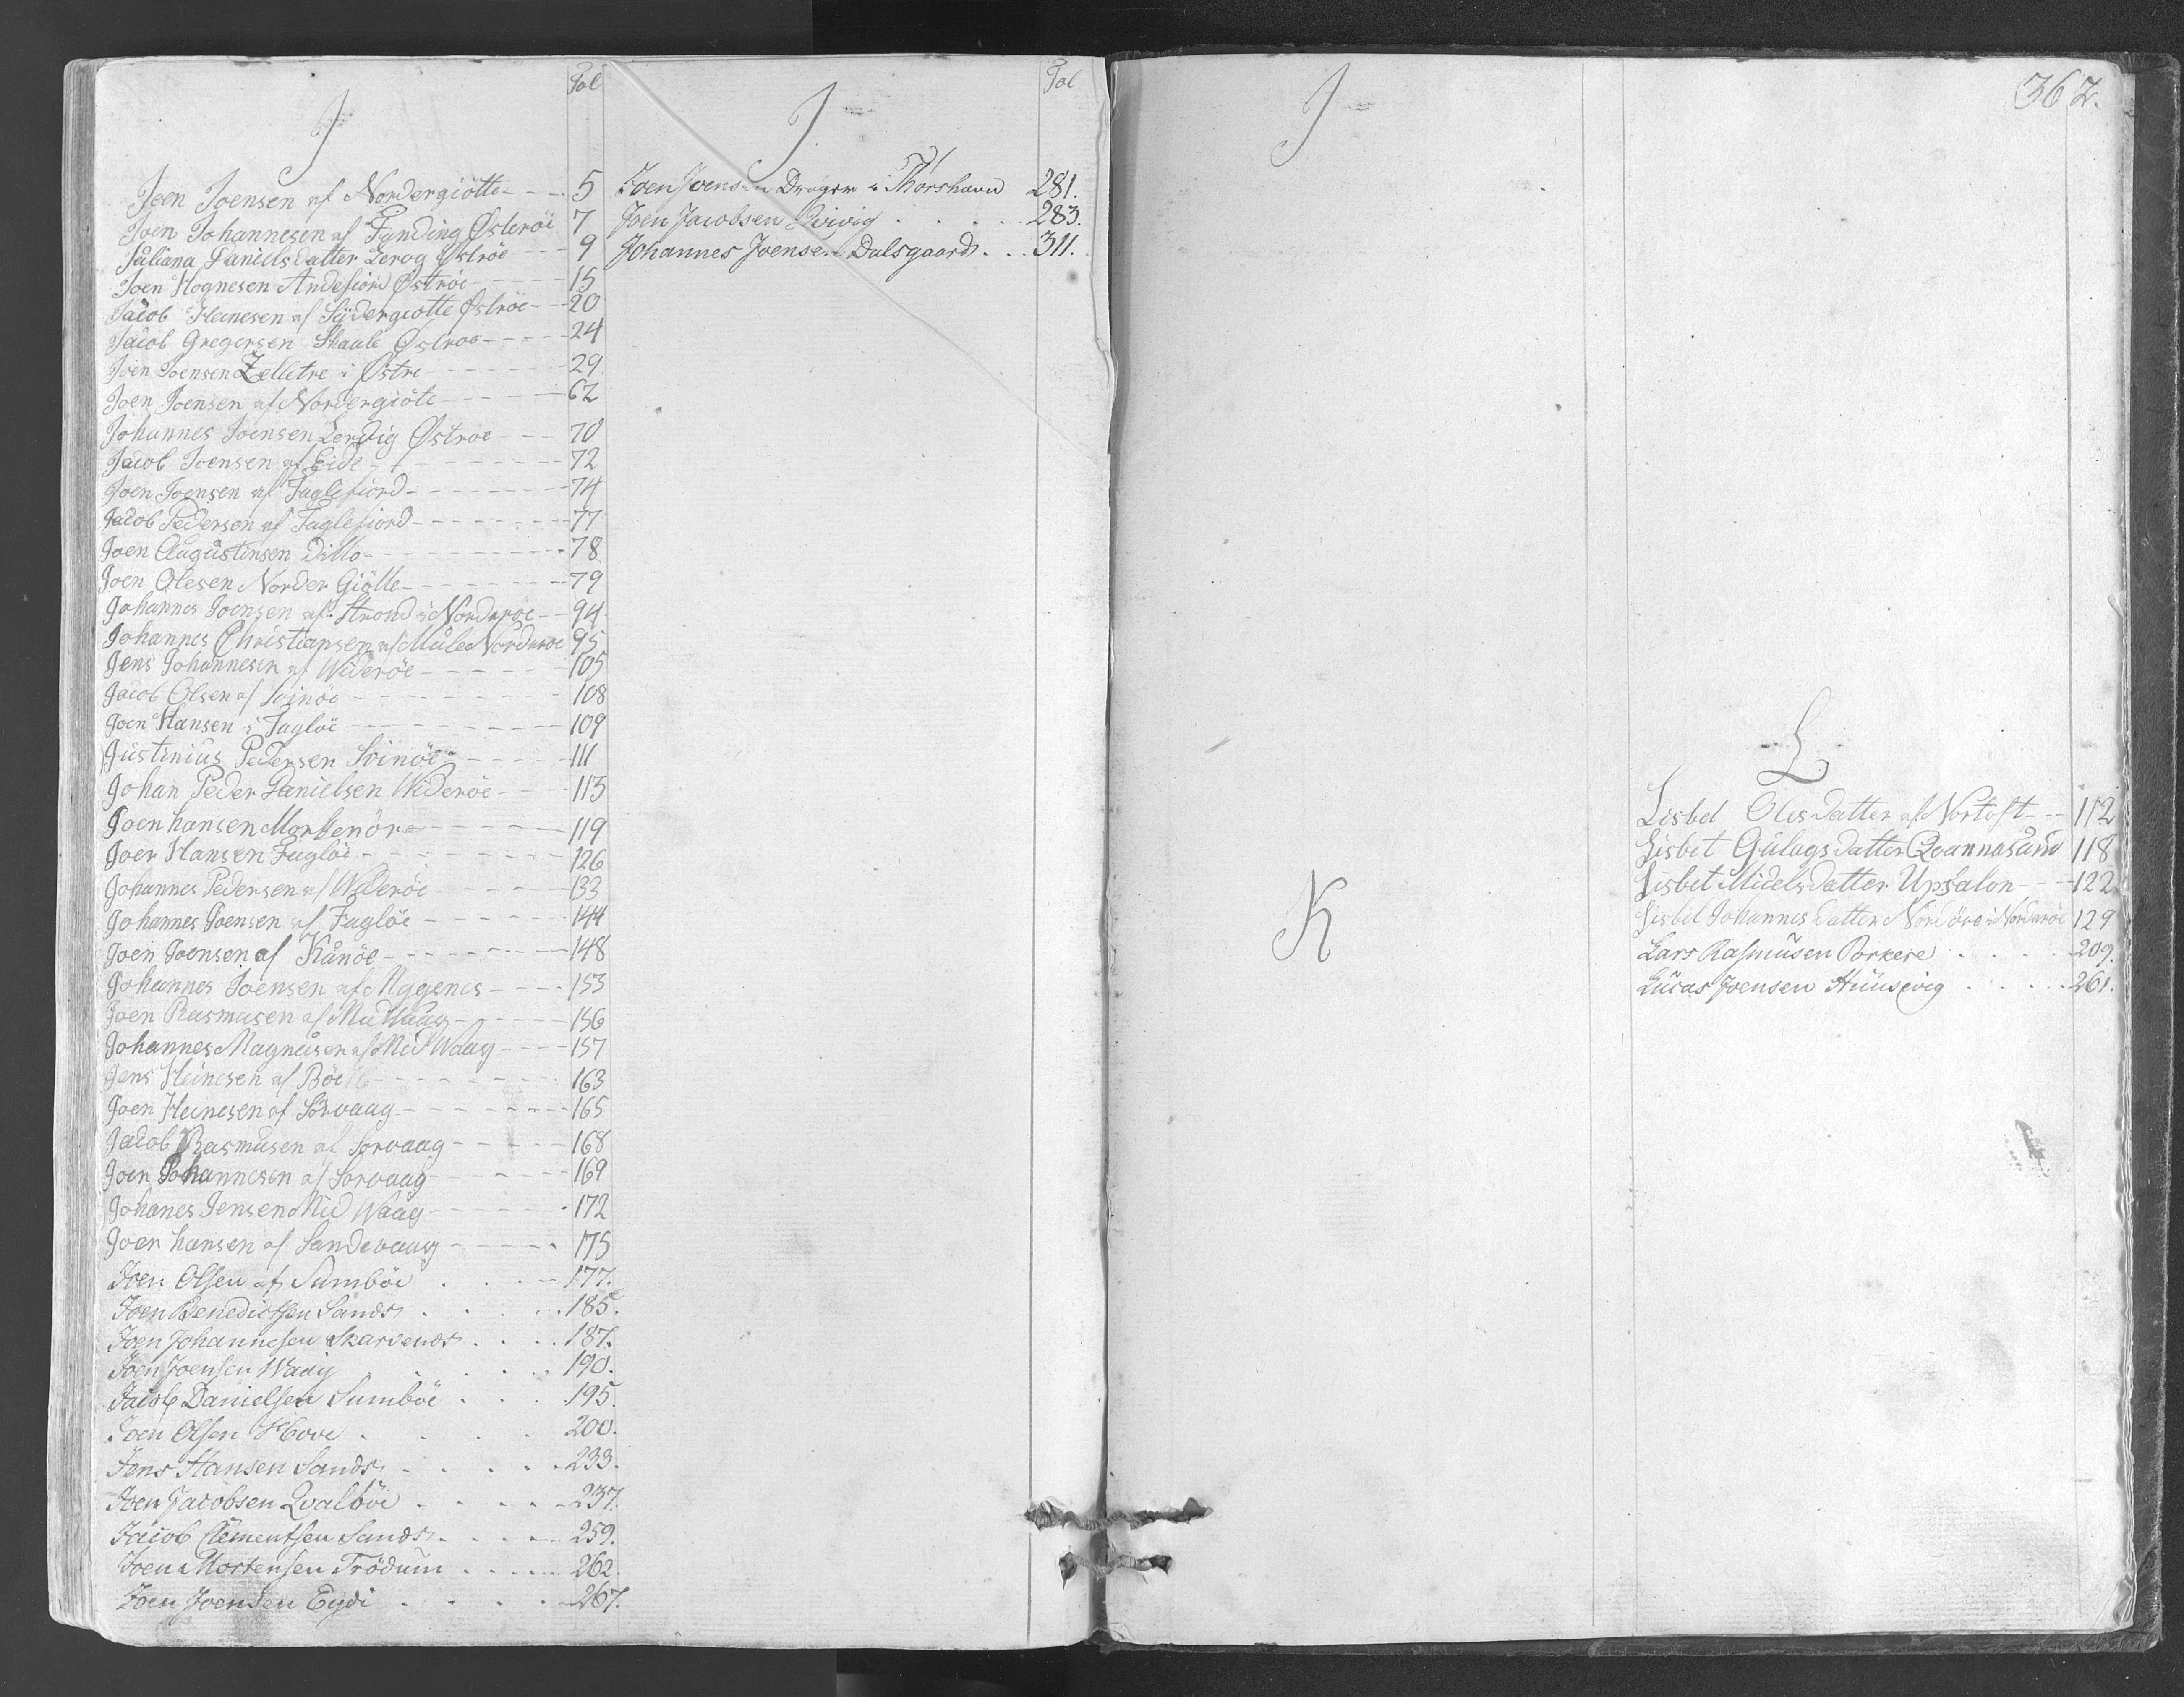 J
Fol
Joen Joensen af Nordergiötte - - - 5
Joen Johannesen af Funding Østeröe 7
Juliana Danielsdatter Lervg Øströe - - 9
Joen Hognesen Andefiord Øströe - - - 15
Jacob Heinesen af Sydergiotte Øströe - - 20
Jacob Gregersen Skaale Østroe - - - - 24
Joen Joensen Zelletre i Østre - - - - 29
Joen Joensen af Nordergiöte - - - - 62
Johannes Joensen Lervig Østroe - - - 70
Jacob Joensen af Eide - - - - - - 72
Joen Joensen af Fuglefiord - - - - - - 74
Jacob Pedersen af Fuglefiord - - - - - - 77
Joen Augustinsen Ditto - - - - - - 78
Joen Olesen Norder Giötte - - - - - - 79
Johannes Joensen af Strond i Norderöe - - 94
Johannes Christiansen af Mule Norderoe 95
Jens Johannesen af Wideröe - - - - - 105
Jacob Olsen af Svinöe - - - - - - 108
Joen Hansen i Fuglöe - - - - - - 109
Justinius Pedersen Svinöe - - - - - 111
Johan Peder Danielsen Wideröe - - - 113
Joen hansen Morkenöre - - - - - 119
Joen Hansen Fuglöe - - - - - - 126
Johannes Pedersen af Wideröe - - - - 133
Johannes Joensen af Fuglöe - - - - - 144
Joen Joensen af Kunöe - - - - - - 148
Johannes Joensen af Myggenes - - - - 153
Joen Rasmusen af Midwaag - - - - - 156
Johannes Magnusen af Mid Waag - - - - 157
Jens Heinesen af Böe - - - - - - 163
Joen Heinesen af Sörvaag - - - - - - 165
Jacob Rasmusen af Sorvaag - - - - - 168
Joen Johannesen af Sorvaag - - - - - 169
Johanes Jensen Mid Waag - - - - - 172
Joen hansen af Sandevaag - - - - - 175
Joen Olsen af Sumböe . . . 177.
Joen Benedictsen Sands . . . 185.
Joen Johannesen Skarvenes . . . 187.
Joen Joensen Waag . . . 190.
Jacob Danielsen Sumböe . . . 195.
Joen Olsen Hove . . . . 200.
Jens Hansen Sands . . . . 233.
Joen Jacobsen Qvalböe . . . . 237.
Jacob Clementsen Sands . . . . 259.
Joen Mortensen Trödum . . . . 262.
Joen Joensen Eydi . . . . 267.
J
Fol
Joen Joensen Drager i Thorshavn 281.
Joen Jacobsen Qvivig . . . . 283.
Johannes Joensen Dalsgaard . . . 311.
J
K
362.
L
Lisbet Olesdatter af Nortoft - - 112
Lisbet Gulags datter Qvannasund 118
Lisbet Midels datter Upsalon - - - 122
Lisbet Johannes datter Nordöre i Norderöe 129
Lars Rasmusen Porkere . . . . 209.
Lucas Joensen Huusevig . . . . 261.